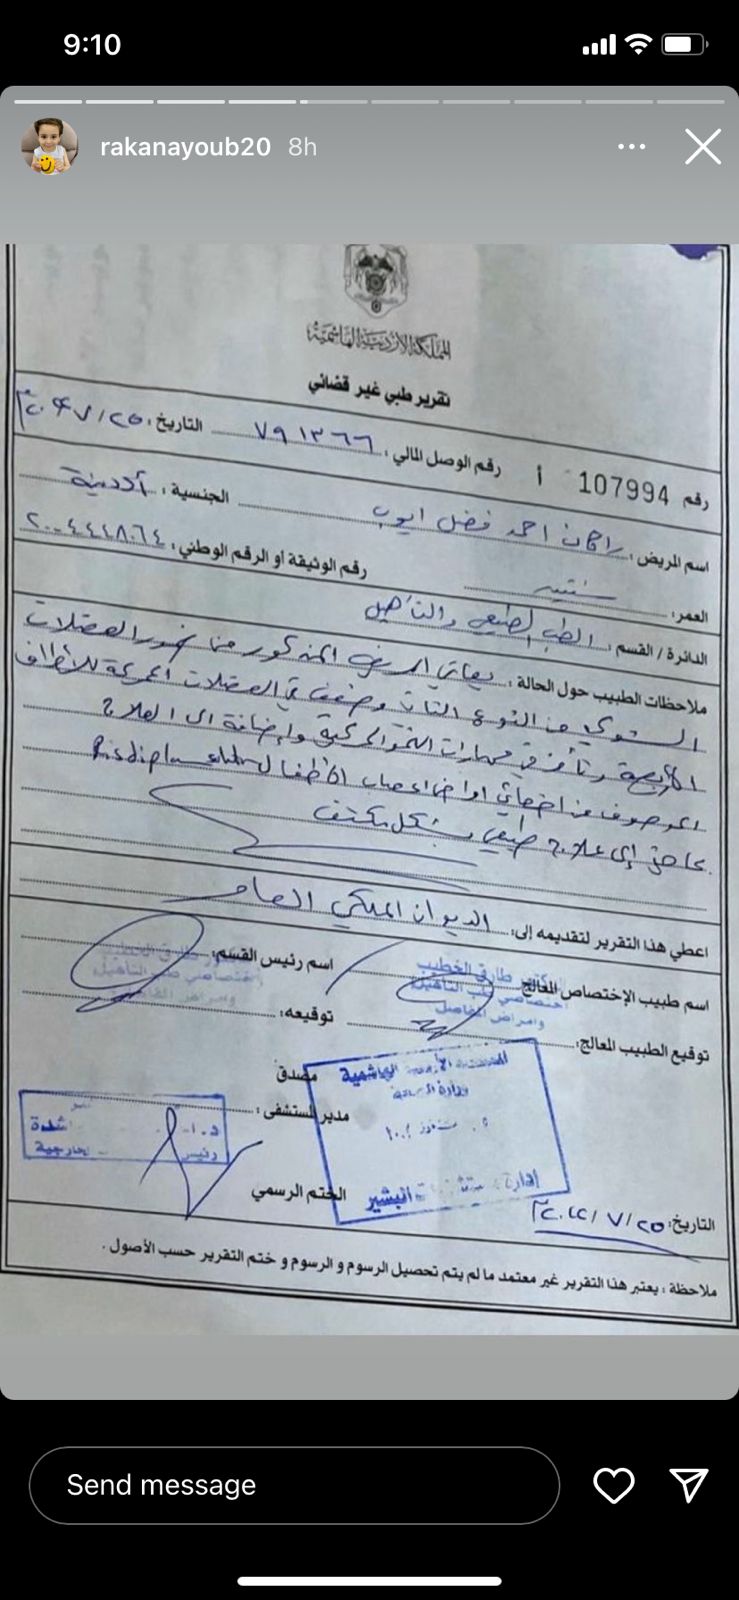 9:10
rakanayoub20 8h
المملكة الأردنية الهاشمية
تقرير طبي غير قضائي
رقم 107994 أ رقم الوصل المالي: ٧٩١٣٦٦ التاريخ: ٧/٢٥
اسم المريض: راكان احمد فضل ايوب الجنسية: أردنية
العمر: سنتين رقم الوثيقة أو الرقم الوطني:
الدائرة / القسم: الطب الطبيعي والتأهيل
ملاحظات الطبيب حول الحالة: يعاني المريض المذكور من ضمور العضلات
الشوكي من النوع الثاني وضعف في العضلات المحركة للأطراف
الأربعة وتأخر في مهارات النمو الحركية وإضافة الى العلاج
الموصوف من اخصائي اعصاب الأطفال Risdiplam
بحاجة إلى علاج طبيعي بشكل مكثف
اعطي هذا التقرير لتقديمه إلى: الديوان الملكي العامر
اسم طبيب الإختصاص المعالج: طارق الخطيب اسم رئيس القسم:
اختصاصي طب التأهيل
وامراض المفاصل
توقيع الطبيب المعالج: توقيعه:
مصدق
مدير المستشفى:
المملكة الأردنية الهاشمية
وزارة الصحة
إدارة مستشفيات البشير
الختم الرسمي
التاريخ: ٧/٢٥
ملاحظة: يعتبر هذا التقرير غير معتمد ما لم يتم تحصيل الرسوم و الرسوم و ختم التقرير حسب الأصول.
Send message